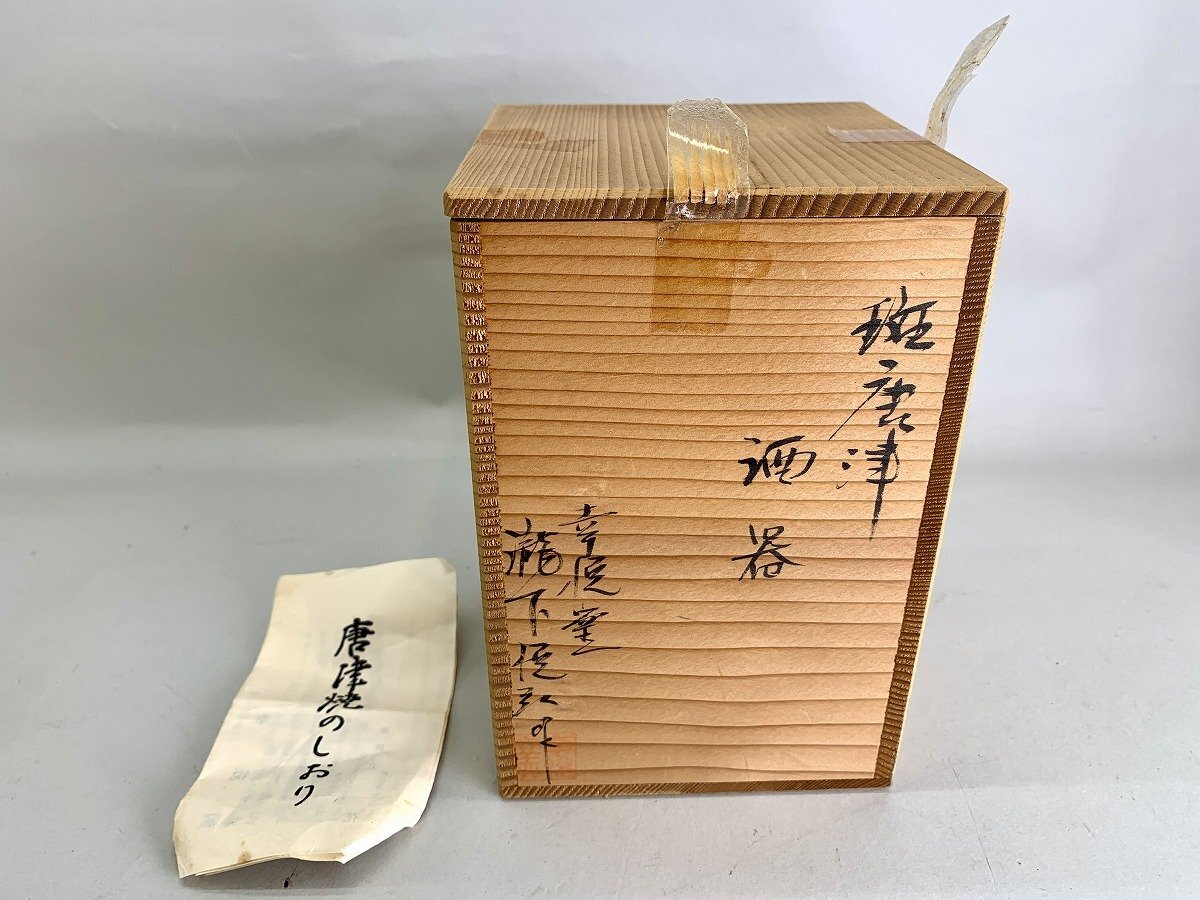 斑唐津
酒器
幸悦窯
瀧下悦弘作
唐津焼のしおり